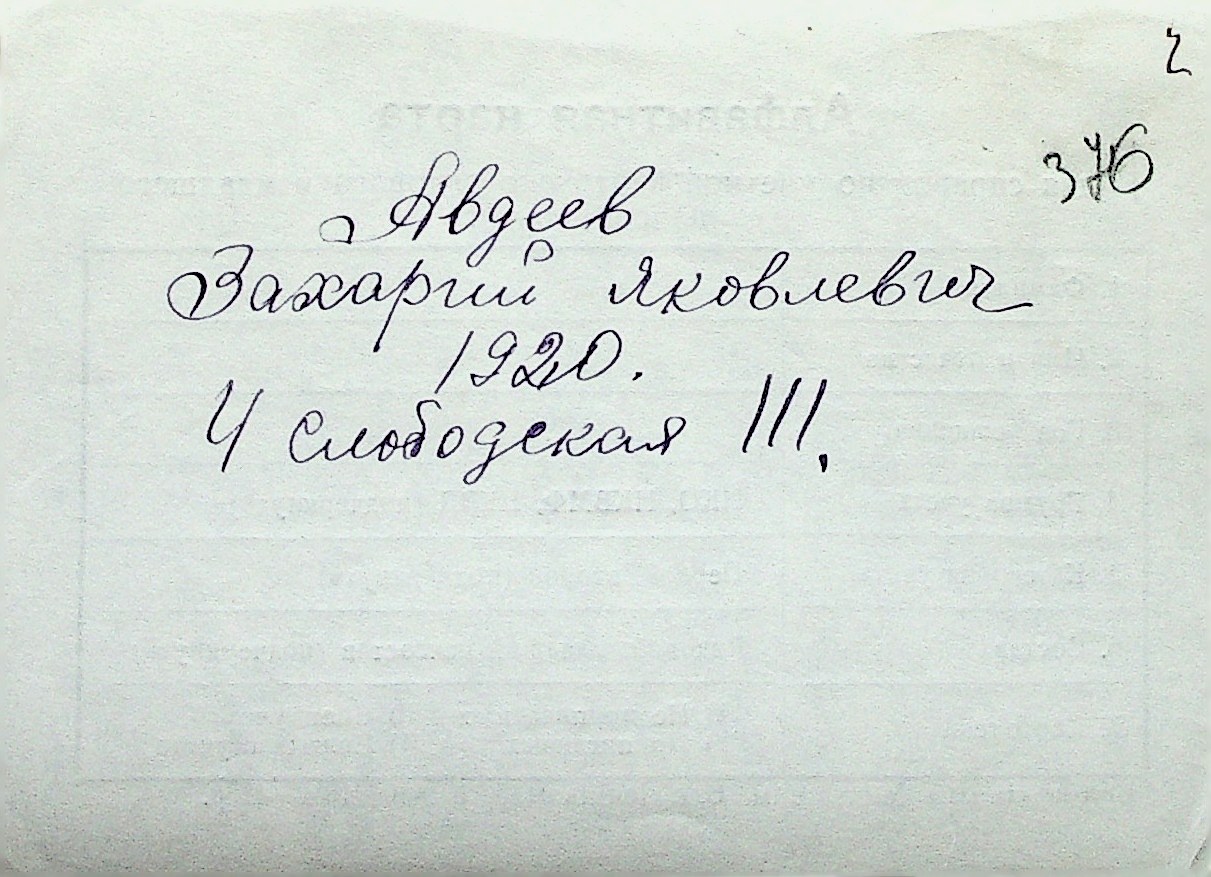 2
376
Авдеев
Захарий Яковлевич
1920.
4 Слободская 111,